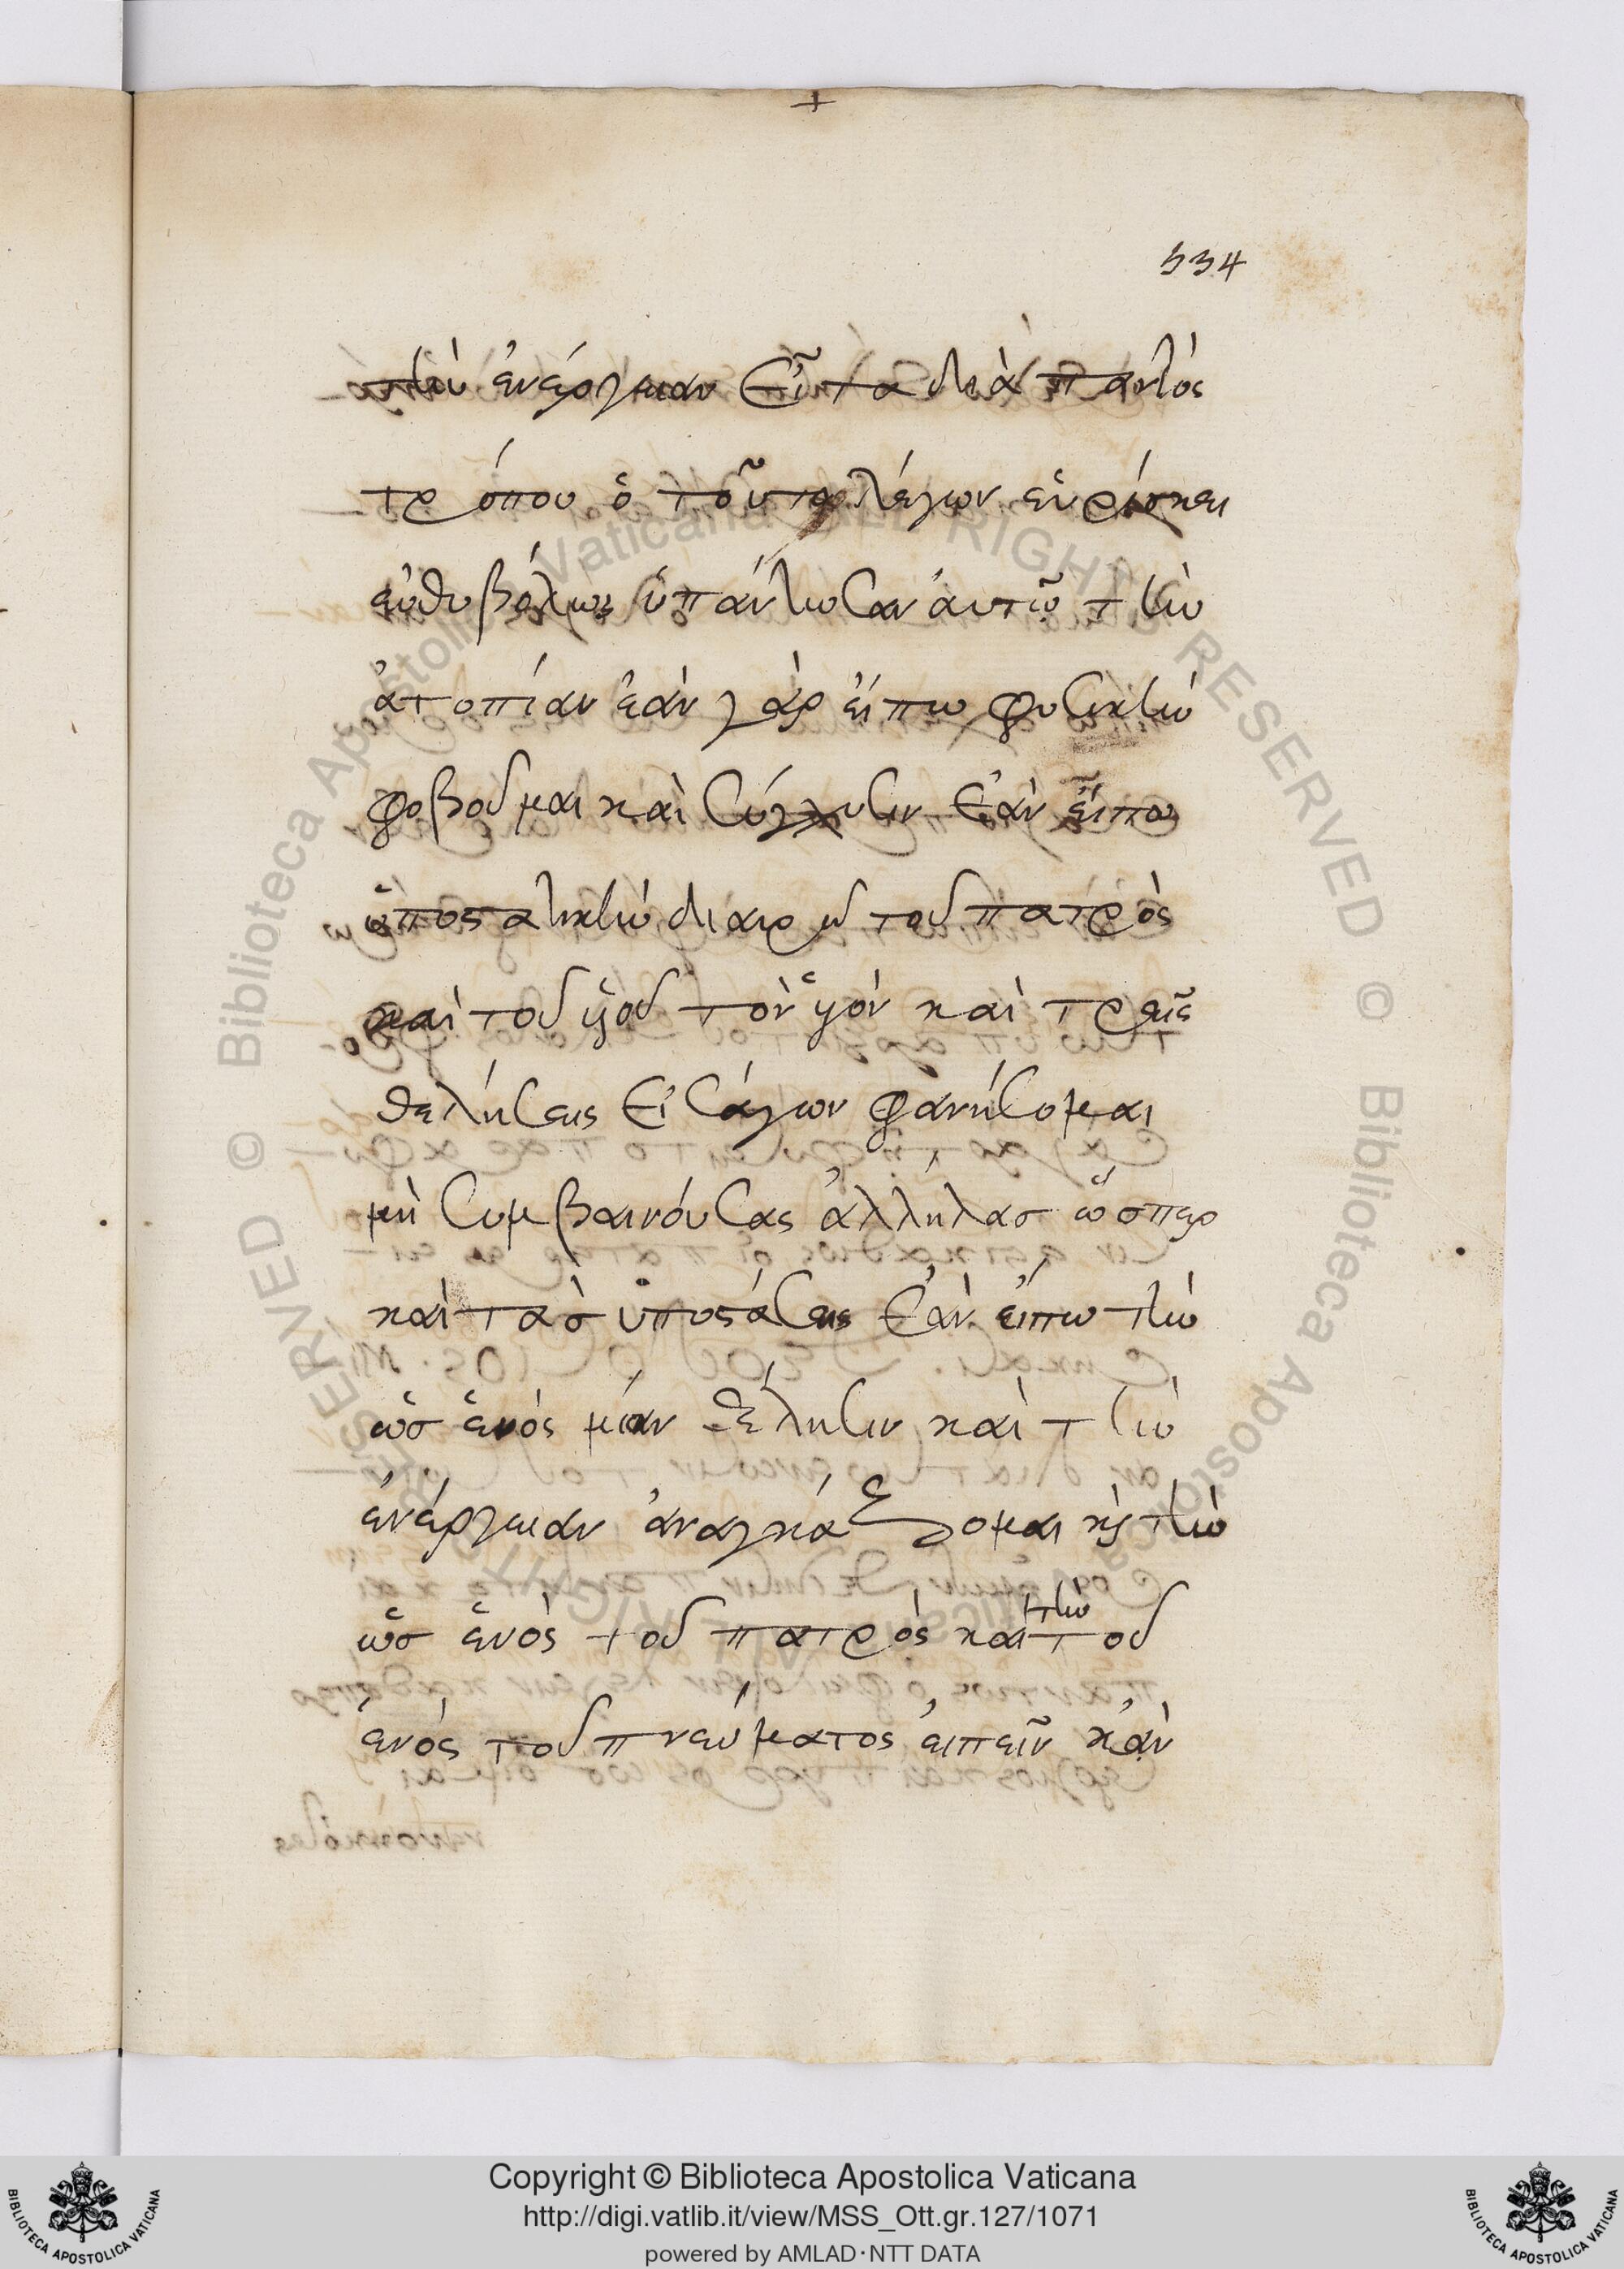 534
τὴν ἐνέργειαν Εἶτα διὰ παντὸς
τρόπου ὁ τοῦτο λέγων εὑρίσκει
εὐθυβόλως ὑπάντωσαν ἀυτῶ τὴν
ἀτοπίαν ἐὰν γὰρ ἐίπω φυσικὴν
φοβοῦμαι καὶ σύγχυσιν Ἐὰν ἐίπω
ὑποστατικὴν διαιρῶ τοῦ πατρὸς
καὶ τοῦ ὑιοῦ τὸν ὑιόν καὶ τρεῖς
θελήσεις Εἰσάγων φανήσομαι
μὴ συμβαινόυσας ἀλλήλασ ὥσπερ
καὶ τὰσ ὑποστάσεις Ἐὰν ἐίπω τὴν
ὡσ ἑνός μίαν θέλησιν καὶ τὴν
ἐνέργειαν ἀναγκάζομαι κὶ τὴν
ὡσ ἑνὸς τοῦ πατρὸς καὶ τὴν τοῦ
ἑνός τοῦ πνεύματος ἐιπεῖν κἀν
Copyright © Biblioteca Apostolica Vaticana
http://digi.vatlib.it/view/MSS_Ott.gr.127/1071
powered by AMLAD·NTT DATA
BIBLIOTECA APOSTOLICA VATICANA
BIBLIOTECA APOSTOLICA VATICANA